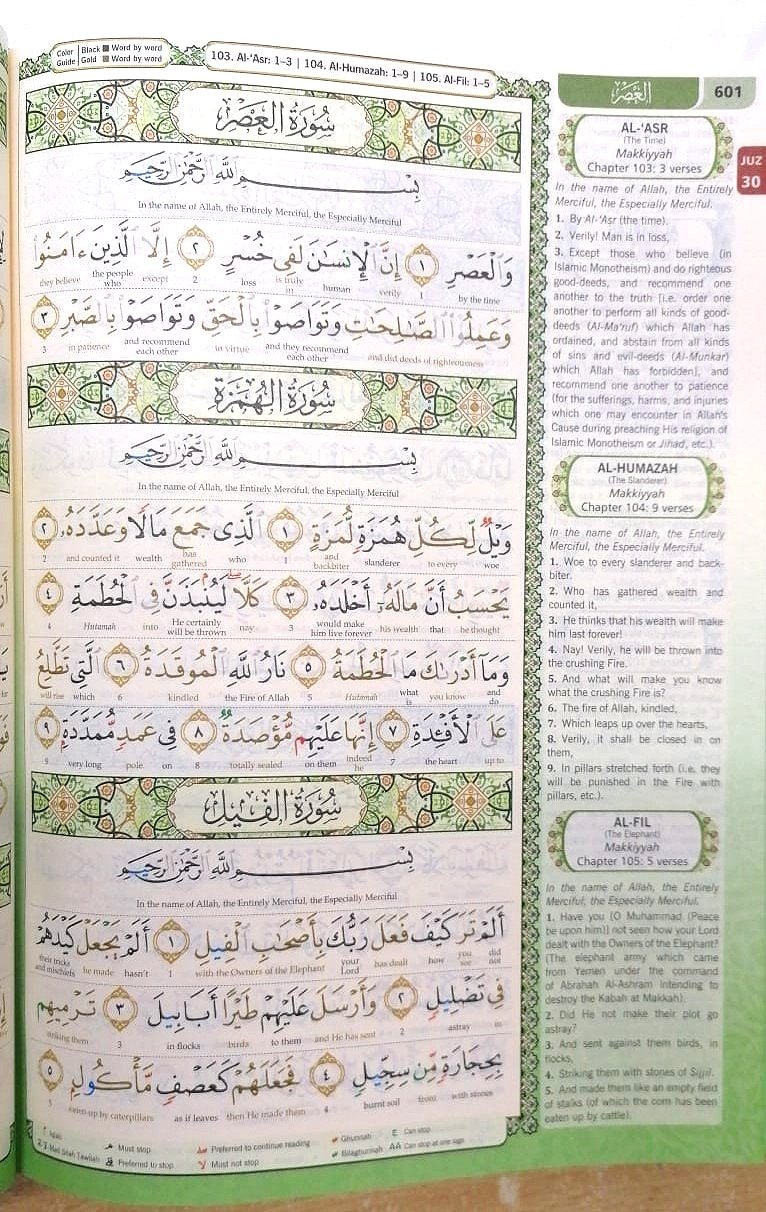 Color Guide
Black ■ Word by word
Gold ■ Word by word
103. Al-'Asr: 1–3 | 104. Al-Humazah: 1–9 | 105. Al-Fil: 1–5
سُورَةُ العَصْرِ
بِسْمِ اللَّهِ الرَّحْمَٰنِ الرَّحِيمِ
In the name of Allah, the Entirely Merciful, the Especially Merciful
وَالْعَصْرِ ١ إِنَّ الْإِنسَٰنَ لَفِى خُسْرٍ ٢ إِلَّا الَّذِينَ ءَامَنُوا۟
by the time 1 verily human is truly in loss 2 except the people who they believe
وَعَمِلُوا۟ الصَّٰلِحَٰتِ وَتَوَاصَوْا۟ بِالْحَقِّ وَتَوَاصَوْا۟ بِالصَّبْرِ ٣
and did deeds of righteousness and they recommend each other in virtue and recommend each other in patience 3
سُورَةُ الهُمَزَةِ
بِسْمِ اللَّهِ الرَّحْمَٰنِ الرَّحِيمِ
In the name of Allah, the Entirely Merciful, the Especially Merciful
وَيْلٌ لِّكُلِّ هُمَزَةٍ لُّمَزَةٍ ١ الَّذِى جَمَعَ مَالًا وَعَدَّدَهُۥ ٢
woe to every slanderer and backbiter 1 who has gathered wealth and counted it 2
يَحْسَبُ أَنَّ مَالَهُۥٓ أَخْلَدَهُۥ ٣ كَلَّا لَيُنۢبَذَنَّ فِى الْحُطَمَةِ ٤
he thought that his wealth would make him live forever 3 nay He certainly will be thrown into Hutamah 4
وَمَآ أَدْرَىٰكَ مَا الْحُطَمَةُ ٥ نَارُ اللَّهِ الْمُوقَدَةُ ٦ الَّتِى تَطَّلِعُ
and do you know what is Hutamah 5 the Fire of Allah kindled 6 which will rise
عَلَى الْأَفْـِٔدَةِ ٧ إِنَّهَا عَلَيْهِم مُّؤْصَدَةٌ ٨ فِى عَمَدٍ مُّمَدَّدَةٍۭ ٩
up to the heart 7 indeed he on them totally sealed 8 on pole very long 9
سُورَةُ الفِيلِ
بِسْمِ اللَّهِ الرَّحْمَٰنِ الرَّحِيمِ
In the name of Allah, the Entirely Merciful, the Especially Merciful
أَلَمْ تَرَ كَيْفَ فَعَلَ رَبُّكَ بِأَصْحَٰبِ الْفِيلِ ١ أَلَمْ يَجْعَلْ كَيْدَهُمْ
did not you see how has dealt your Lord with the Owners of the Elephant 1 hasn't he made their tricks and mischiefs
فِى تَضْلِيلٍ ٢ وَأَرْسَلَ عَلَيْهِمْ طَيْرًا أَبَابِيلَ ٣ تَرْمِيهِم
in astray 2 and He has sent to them birds in flocks 3 striking them
بِحِجَارَةٍ مِّن سِجِّيلٍ ٤ فَجَعَلَهُمْ كَعَصْفٍ مَّأْكُولٍۭ ٥
with stones from burnt soil 4 then He made them as if leaves eaten up by caterpillars 5
Must stop
Preferred to continue reading
Ghunnah
Can stop
Mad Silah Tawilah
Preferred to stop
Must not stop
Bilaghunnah
Can stop at one sign
العَصْرِ
601
JUZ
30
AL-'ASR
(The Time)
Makkiyyah
Chapter 103: 3 verses
In the name of Allah, the Entirely
Merciful, the Especially Merciful.
1. By Al-'Asr (the time).
2. Verily! Man is in loss,
3. Except those who believe (in
Islamic Monotheism) and do righteous
good-deeds, and recommend one
another to the truth [i.e. order one
another to perform all kinds of good-
deeds (Al-Ma'ruf) which Allah has
ordained, and abstain from all kinds
of sins and evil-deeds (Al-Munkar)
which Allah has forbidden], and
recommend one another to patience
(for the sufferings, harms, and injuries
which one may encounter in Allah's
Cause during preaching His religion of
Islamic Monotheism or Jihad, etc.).
AL-HUMAZAH
(The Slanderer)
Makkiyyah
Chapter 104: 9 verses
In the name of Allah, the Entirely
Merciful, the Especially Merciful.
1. Woe to every slanderer and back-
biter.
2. Who has gathered wealth and
counted it,
3. He thinks that his wealth will make
him last forever!
4. Nay! Verily, he will be thrown into
the crushing Fire.
5. And what will make you know
what the crushing Fire is?
6. The fire of Allah, kindled,
7. Which leaps up over the hearts,
8. Verily, it shall be closed in on
them,
9. In pillars stretched forth (i.e. they
will be punished in the Fire with
pillars, etc.).
AL-FIL
(The Elephant)
Makkiyyah
Chapter 105: 5 verses
In the name of Allah, the Entirely
Merciful, the Especially Merciful.
1. Have you [O Muhammad (Peace
be upon him)] not seen how your Lord
dealt with the Owners of the Elephant?
(The elephant army which came
from Yemen under the command
of Abrahah Al-Ashram intending to
destroy the Kabah at Makkah).
2. Did He not make their plot go
astray?
3. And sent against them birds, in
flocks,
4. Striking them with stones of Sijjil.
5. And made them like an empty field
of stalks (of which the corn has been
eaten up by cattle).